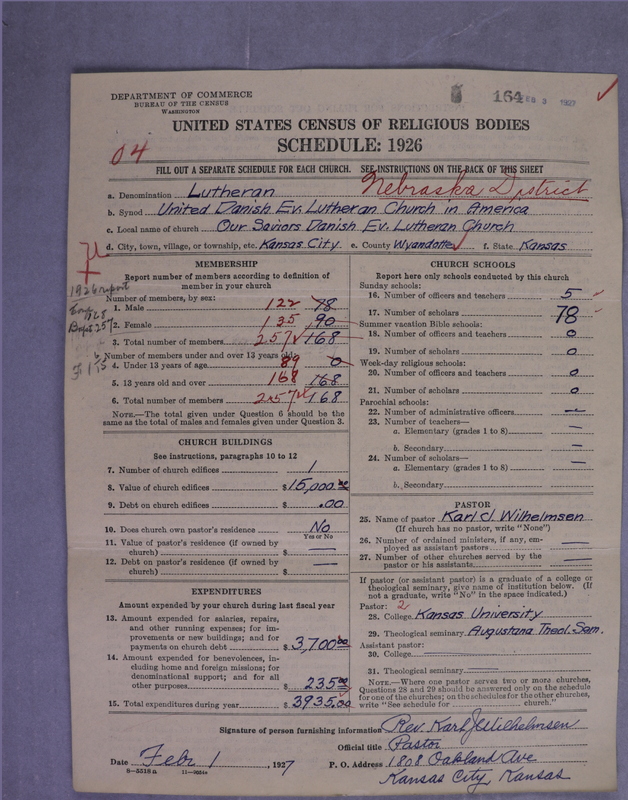 DEPARTMENT OF COMMERCE
BUREAU OF THE CENSUS
WASHINGTON
164 3 1927
UNITED STATES CENSUS OF RELIGIOUS BODIES
SCHEDULE: 1926
04
FILL OUT A SEPARATE SCHEDULE FOR EACH CHURCH. SEE INSTRUCTIONS ON THE BACK OF THIS SHEET
Nebraska District
a. Denomination Lutheran
b. Synod United Danish Ev. Lutheran Church in America
c. Local name of church Our Saviors Danish Ev. Lutheran Church
d. City, town, village, or township, etc. Kansas City e. County Wyandotte f. State Kansas
MEMBERSHIP
Report number of members according to definition of
member in your church
1926 report
Number of members, by sex:
1. Male 122 78
2. Female 135 90
3. Total number of members 257 168
Number of members under and over 13 years old:
4. Under 13 years of age 89 0
5. 13 years old and over 168 168
6. Total number of members 257 168
NOTE.—The total given under Question 6 should be
same as the total of males and females given under Question 3.
CHURCH BUILDINGS
See instructions, paragraphs 10 to 12
7. Number of church edifices 1
8. Value of church edifices $15,000.00
9. Debt on church edifices $ .00
10. Does church own pastor's residence No
Yes or No
11. Value of pastor's residence (if owned by
church) $ —
12. Debt on pastor's residence (if owned by
church) $ —
EXPENDITURES
Amount expended by your church during last fiscal year
13. Amount expended for salaries, repairs,
and other running expenses; for im-
provements or new buildings; and for
payments on church debt $3,700.00
14. Amount expended for benevolences, in-
cluding home and foreign missions; for
denominational support; and for all
other purposes 235.00
15. Total expenditures during year $3935.00
CHURCH SCHOOLS
Report here only schools conducted by this church
Sunday schools:
16. Number of officers and teachers 5
17. Number of scholars 78
Summer vacation Bible schools:
18. Number of officers and teachers 0
19. Number of scholars 0
Week-day religious schools:
20. Number of officers and teachers 0
21. Number of scholars 0
Parochial schools:
22. Number of administrative officers —
23. Number of teachers—
a. Elementary (grades 1 to 8) —
b. Secondary —
24. Number of scholars—
a. Elementary (grades 1 to 8) —
b. Secondary
PASTOR
25. Name of pastor Karl J. Wilhelmsen
(If church has no pastor, write "None")
26. Number of ordained ministers, if any, em-
ployed as assistant pastors —
27. Number of other churches served by the
pastor or his assistants —
If pastor (or assistant pastor) is a graduate of a college or
theological seminary, give name of institution below. (If
not a graduate, write "No" in the space indicated.)
Pastor: 2
28. College Kansas University
29. Theological seminary Augustana Theol. Sem.
Assistant pastor:
30. College
31. Theological seminary
NOTE.—Where one pastor serves two or more churches,
Questions 28 and 29 should be answered only on the schedule
for one of the churches; on the schedules for the other churches,
write "See schedule for church."
Signature of person furnishing information Rev. Karl J Wilhelmsen
Official title Pastor
Date Febr 1, 1927 P. O. Address 1808 Oakland Ave
8—5318 a Kansas City, Kansas